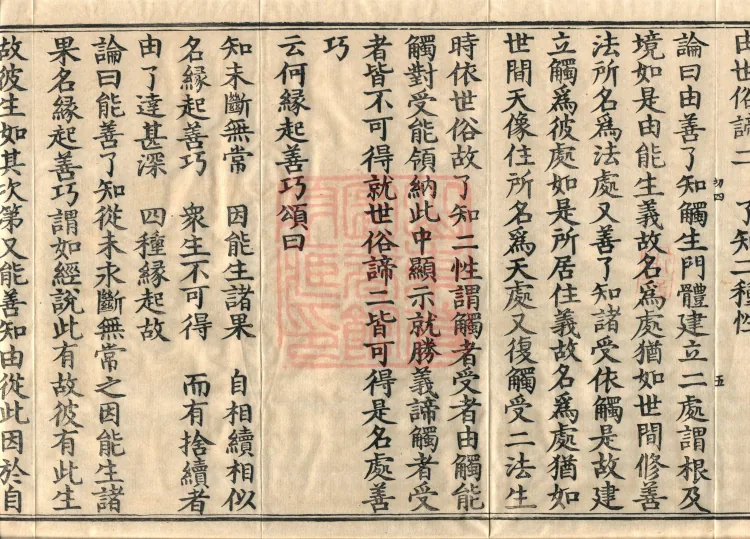 由世俗諦二　了知二種性
論曰由善了知觸生門體建立二處謂根及
境如是由能生義故名爲處猶如世間修善
法所名爲法處又善了知諸受依觸是故建
立觸爲彼處如是所居住義故名爲處猶如
世間天像住所名爲天處又復觸受二法生
時依世俗故了知二性謂觸者受者由觸能
觸對受能領納此中顯示就勝義諦觸者受
者皆不可得就世俗諦二皆可得是名處善
巧
云何緣起善巧頌曰
知未斷無常　因能生諸果　自相續相似
名緣起善巧　衆生不可得　而有捨續者
由了達甚深　四種緣起故
論曰能善了知從未永斷無常之因能生諸
果名緣起善巧謂如經說此有故彼有此生
故彼生如其次第又能善知由從此因於自
五